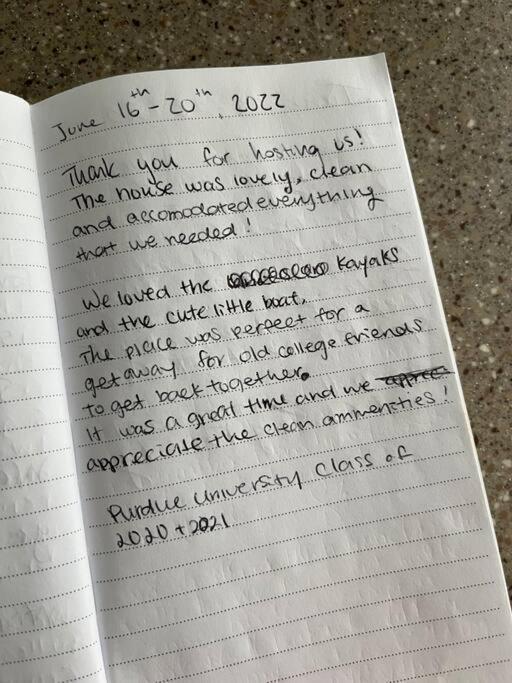 June 16th - 20th, 2022
Thank you for hosting us!
The house was lovely, clean
and accomodated everything
that we needed!
We loved the kayaks
and the cute little boat.
The place was perfect for a
getaway for old college friends
to get back together.
It was a great time and we
appreciate the clean ammenities!
Purdue University Class of
2020 + 2021